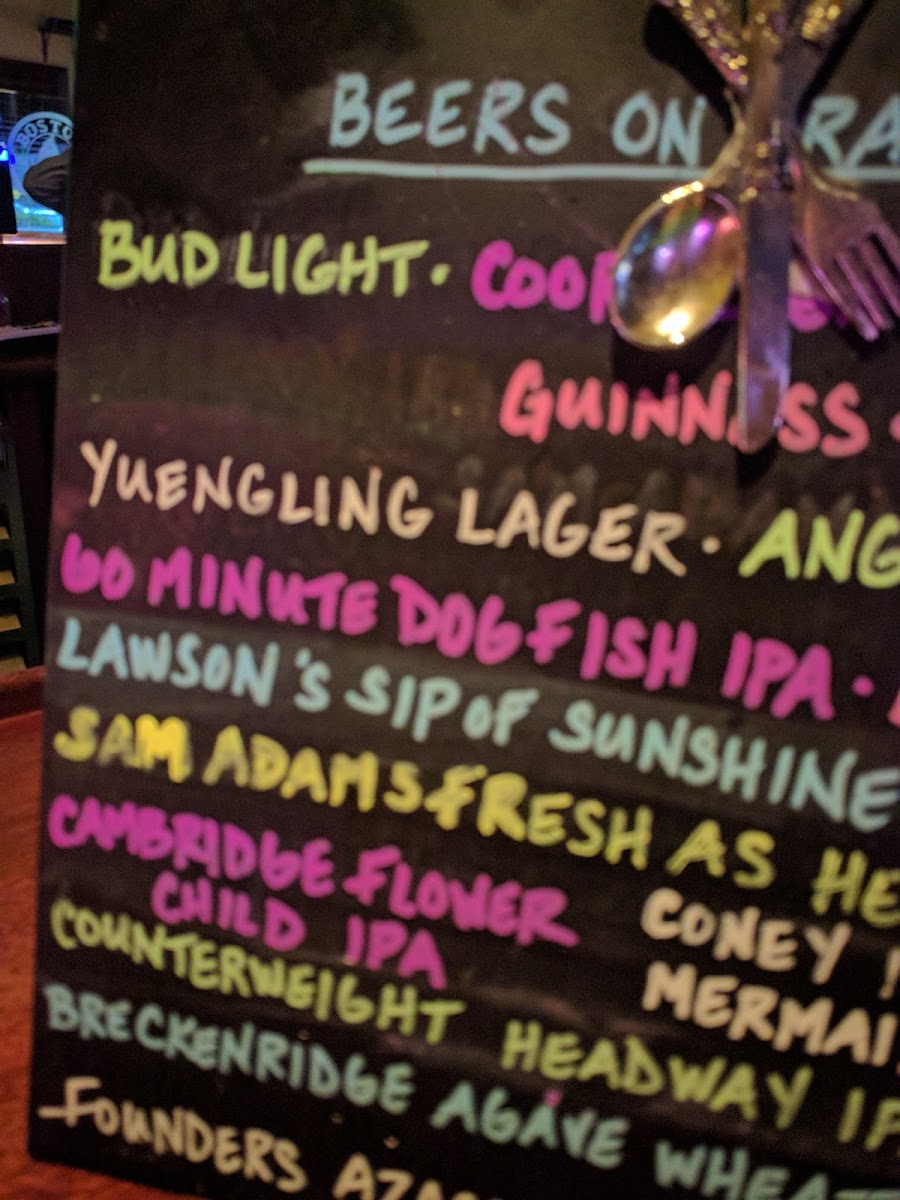 BOSTO
BEERS ON RA
BUD LIGHT · COO
GUINN SS ·
YUENGLING LAGER · ANG
60 MINUTE DOGFISH IPA ·
LAWSON'S SIP OF SUNSHINE
SAM ADAMS FRESH AS HE
CAMBRIDGE FLOWER
CHILD IPA
CONEY
MERMAI
COUNTERWEIGHT HEADWAY IP
BRECKENRIDGE AGAVE WHEA
FOUNDERS AZA